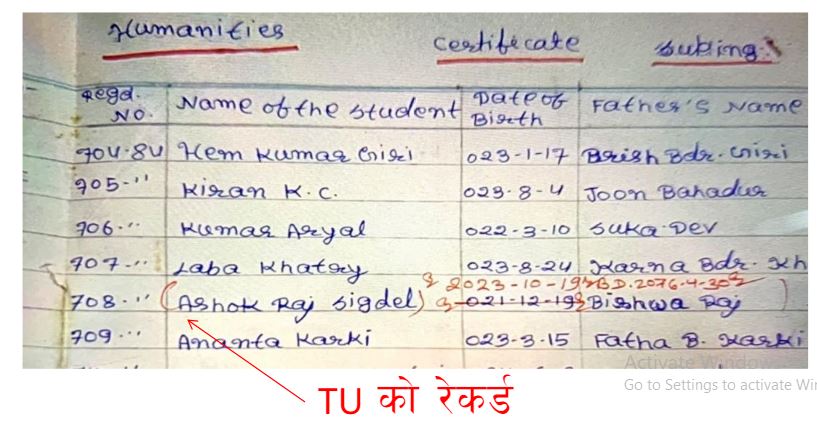 Humanities Certificate
Regd. No. Name of the student Date of Birth Father's Name
704-84 Hem Kumar Giri 023-1-17 Brish Bdr. Giri
705-" Kiran K.C. 023-8-4 Joon Bahadur
706-" Kumar Aryal 022-3-10 Suka Dev
707-" Laba Khatry 023-8-24 Karna Bdr. Kh
2023-10-19 B.D. 2076-4-30
708-" (Ashok Raj Sigdel) 021-12-19 Bishwa Raj
709-" Ananta Karki 023-3-15 Fatha B. Karki
Activate Window
Go to Settings to activate Wi
TU को रेकर्ड